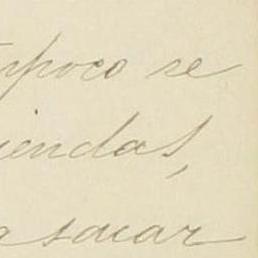 mpoco se
iendas,
a sacar